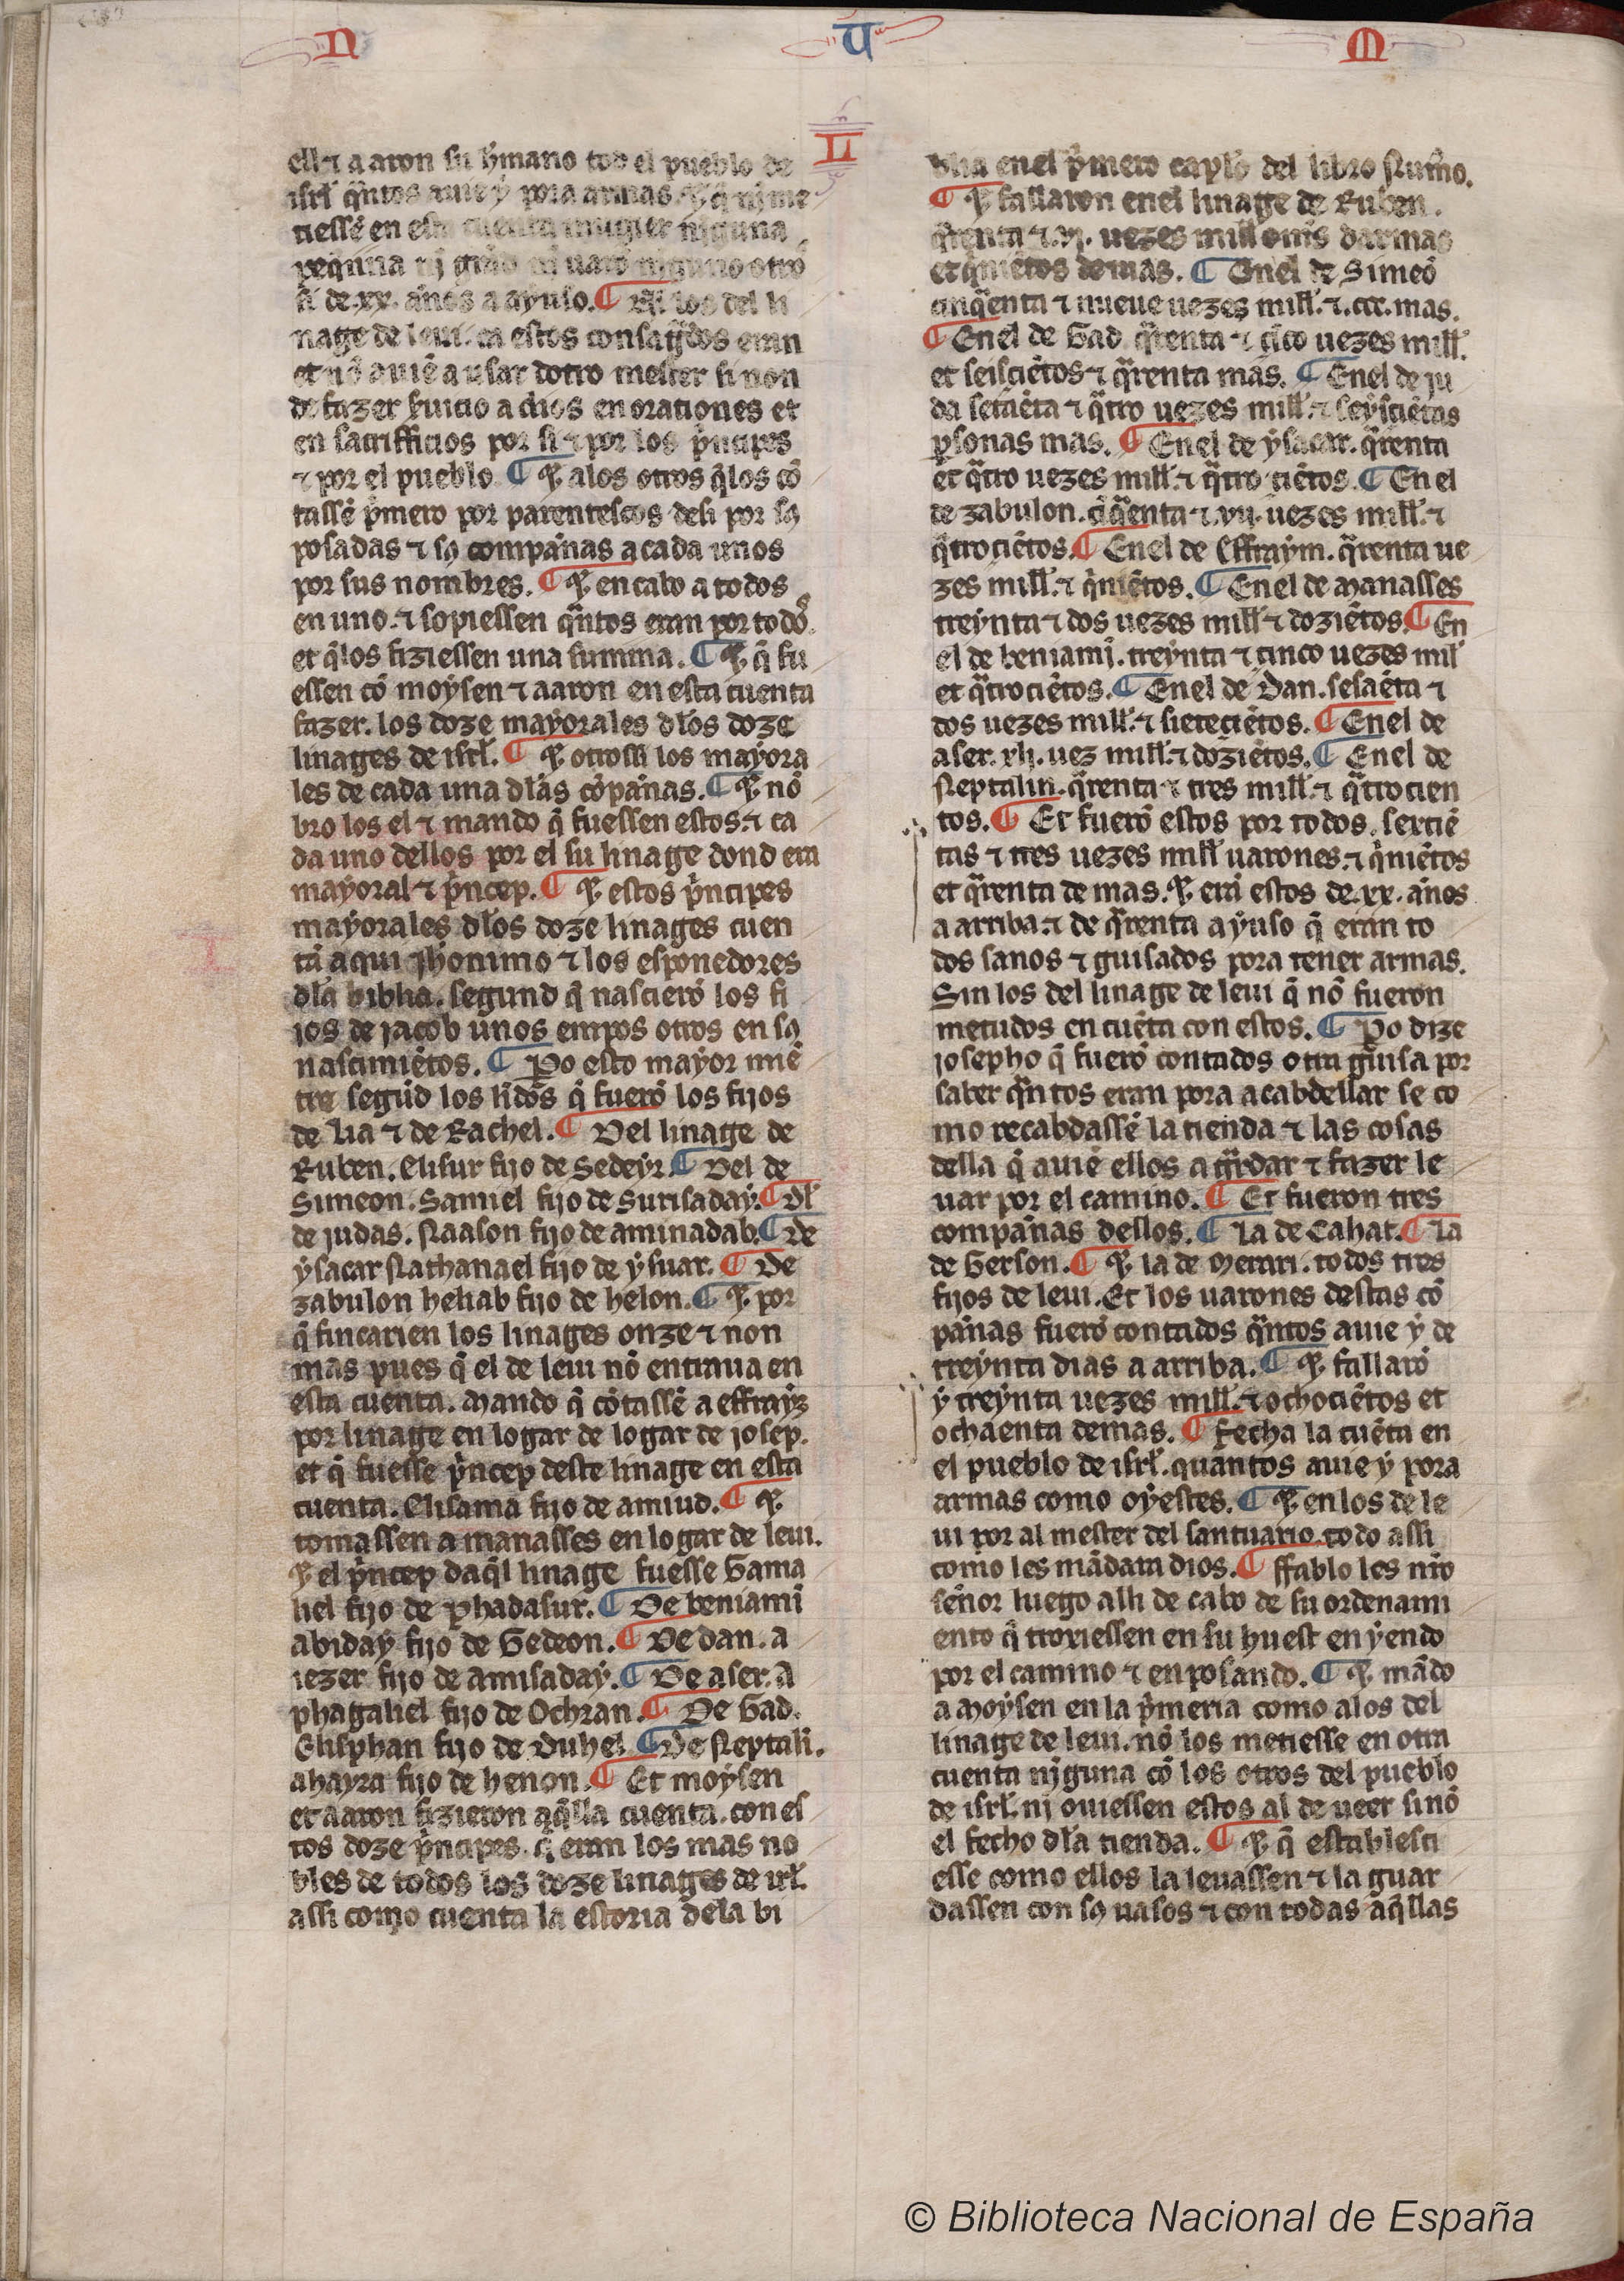 N U M
L
ell ⁊ a aron su h̃mano tod el pueblo de
isrł q̃ntos auie ẏ pora armas. Ꝫ q̃ nj me
tiessẽ en esta cuenta mugier nj̃guna
peq̃nna nj grãd nj uarõ nj̃guno otro
si de .xx. ãnos a aẏuso. ¶ Nj̃ los del li
nage de leui. ca estos consag̃dos eran
et nõ auiẽ a usar dotro mester si non
de fazer suicio a dios en orationes et
en sacrifficios por si ⁊ por los p̃ncipes
⁊ por el pueblo ¶ Ꝫ alos otros q̃los cõ
tassẽ p̃mero por parentescos deli por sꝯ
posadas ⁊ sꝯ compãnas a cada unos
por sus nombres. ¶ Ꝫ en cabo a todos
en uno. ⁊ sopiessen q̃ntos eran por todos̃.
et q̃los fiziessen una summa. ¶ Ꝫ q̃ fu
essen cõ moẏsen ⁊ aaron en esta cuenta
fazer. los doze maẏorales dłos doze
linages de isrł. ¶ Ꝫ otrossi los maẏora
les de cada una dłas cõpãnas. ¶ Ꝫ nõ
bro los el ⁊ mando q̃ fuessen estos. ⁊ ca
da uno dellos por el su linage dond era
maẏoral ⁊ p̃ncep. ¶ Ꝫ estos p̃ncipes
maẏorales dłos doze linages cuen
tã aqui jh̃onimo ⁊ los esponedores
dła biblia. segund q̃ nascierõ los fi
jos de jacob unos empos otros en sꝯ
nascimiẽtos. ¶ Po esto mayor miẽ
tre segũd los lịdõs q̃ fuerõ los fijos
de lia ⁊ de Rachel. ¶ Del linage de
Ruben. Elisur fijo de Sedeẏr. ¶ Del de
Simeon. Samuel fijo de Surisadaẏ. ¶ Dł
de judas. Naason fijo de aminadab. ¶ De
ẏsacar Nathanael fijo de ẏsuar. ¶ De
zabulon heliab fijo de helon. ¶ Ꝫ por
q̃ fincarien los linages onze ⁊ non
mas pues q̃ el de leui nõ entraua en
esta cuenta. Mando q̃ cõtassẽ a effraẏz
por linage en logar de logar de josep.
et q̃ fuesse p̃ncep deste linage en esta
cuenta. Elisama fijo de amiud. ¶ Ꝫ
tomassen a manasses en logar de leui.
Ꝫ el p̃ncep daq̃l linage fuesse Gama
liel fijo de phadasur. ¶ De beniamĩ
abidaẏ fijo de Gedeon. ¶ De dan. a
iezer fijo de amisadaẏ. ¶ De aser. a
phagahel fijo de Ochran. ¶ De Gad.
Elisphan fijo de Duhel ¶ De Neptali.
ahayra fijo de henon. ¶ Et moẏsen
et aaron fizieron aq̃lla cuenta. con es
tos doze p̃ncipes. q̃ eran los mas no
bles de todos los doze linages de irł.
assi como cuenta la estoria dela bi
blia enel p̃mero caplõ del libro Num̃o.
¶ Ꝫ fallaron enel linage de Ruben.
q̃renta ⁊ .vj. uezes mill om̃s darmas
et q̃niẽtos demas. ¶ Enel de Simeõ
cinq̃enta ⁊ nueue uezes mill. ⁊ .ccc. mas.
¶ Enel de Gad q̃renta ⁊ cĩco uezes mill.
et seisciẽtos ⁊ q̃renta mas. ¶ Enel de ju
da setaẽta ⁊ q̃tro uezes mill. ⁊ seẏsciẽtas
p̲sonas mas. ¶ Enel de ẏsacar. q̃renta
et q̃tro uezes mill. ⁊ q̃tro ciẽtos. ¶ En el
de zabulon. cĩq̃enta ⁊ .vij. uezes mill. ⁊
q̃trociẽtos. ¶ Enel de Effraẏm. q̃renta ue
zes mill. ⁊ q̃niẽtos. ¶ Enel de Manasses
treẏnta ⁊ dos uezes mill ⁊ doziẽtos. ¶ En
el de beniamĩ. treẏnta ⁊ cinco uezes mil
et q̃trociẽtos. ¶ Enel de Dan. sesaẽta ⁊
dos uezes mill. ⁊ sieteciẽtos. ¶ Enel de
aser. xlj. uez mill. ⁊ doziẽtos. ¶ Enel de
Neptalin. q̃renta ⁊ tres mill. ⁊ q̃trocien
tos. ¶ Et fuerõ estos por todos. serciẽ
tas ⁊ tres uezes mill uarones. ⁊ q̃niẽtos
et q̃renta de mas. Ꝫ erã estos de .xx. ãnos
a arriba. ⁊ de q̃renta aẏuso q̃ eran to
dos sanos ⁊ guisados pora tener armas.
Sin los del linage de leui q̃ nõ fueron
metudos en cuẽta con estos. ¶ Po dize
josepho q̃ fuerõ contados otra guisa por
saber q̃ntos eran pora acabdellar se co
mo recabdassẽ la tienda ⁊ las cosas
della q̃ auiẽ ellos a g̃rdar ⁊ fazer le
uar por el camino. ¶ Et fueron tres
compãnas dellos. ¶ La de Cahat. ¶ La
de Gerson. ¶ Ꝫ la de Merari. todos tres
fijos de leui. Et los uarones destas cõ
pãnas fuerõ contados q̃ntos auie ẏ de
treẏnta dias a arriba. ¶ Ꝫ fallarõ
ẏ treẏnta uezes mill. ⁊ ochociẽtos et
ochaenta demas. ¶ Fecha la cuẽta en
el pueblo de isrł. quantos auie ẏ pora
armas como oẏestes. ¶ Ꝫ en los de le
ui por al mester del santuario. todo assi
como les mãdara dios. ¶ ffablo les nr̃o
señor luego alli de cabo de su ordenami
ento q̃ troxiessen en su huest en ẏendo
por el camino ⁊ en posando. ¶ Ꝫ mãdo
a Moẏsen en la p̃meria como alos del
linage de leui. nõ los metiesse en otra
cuenta nj̃guna cõ los otros del pueblo
de isrł. nj ouiessen estos al de ueer sinõ
el fecho dła tienda. ¶ Ꝫ q̃ establesci
esse como ellos la leuassen ⁊ la guar
dassen con sꝯ uasos ⁊ con todas aq̃llas
© Biblioteca Nacional de España